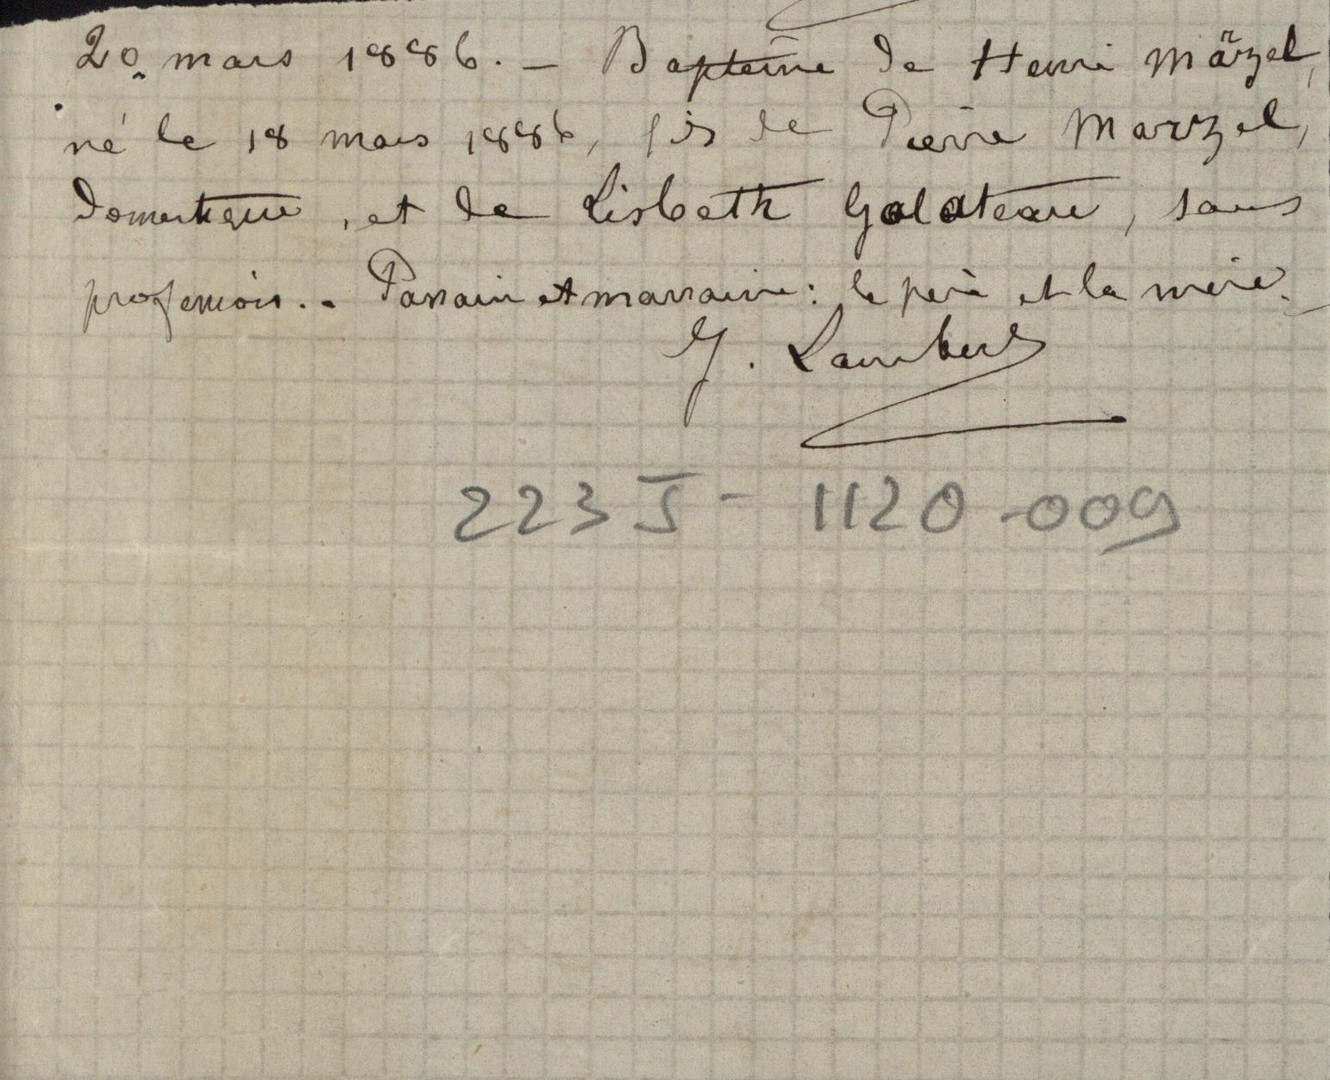 20 mars 1886. — Baptême de Henri Märzel,
né le 18 mars 1886, fils de Pierre Marzel,
domestique, et de Lisbeth Galateau, sans
profession. - Parrain et marraine: le père et la mère.
G. Lambert
223 J - 1120 - 009